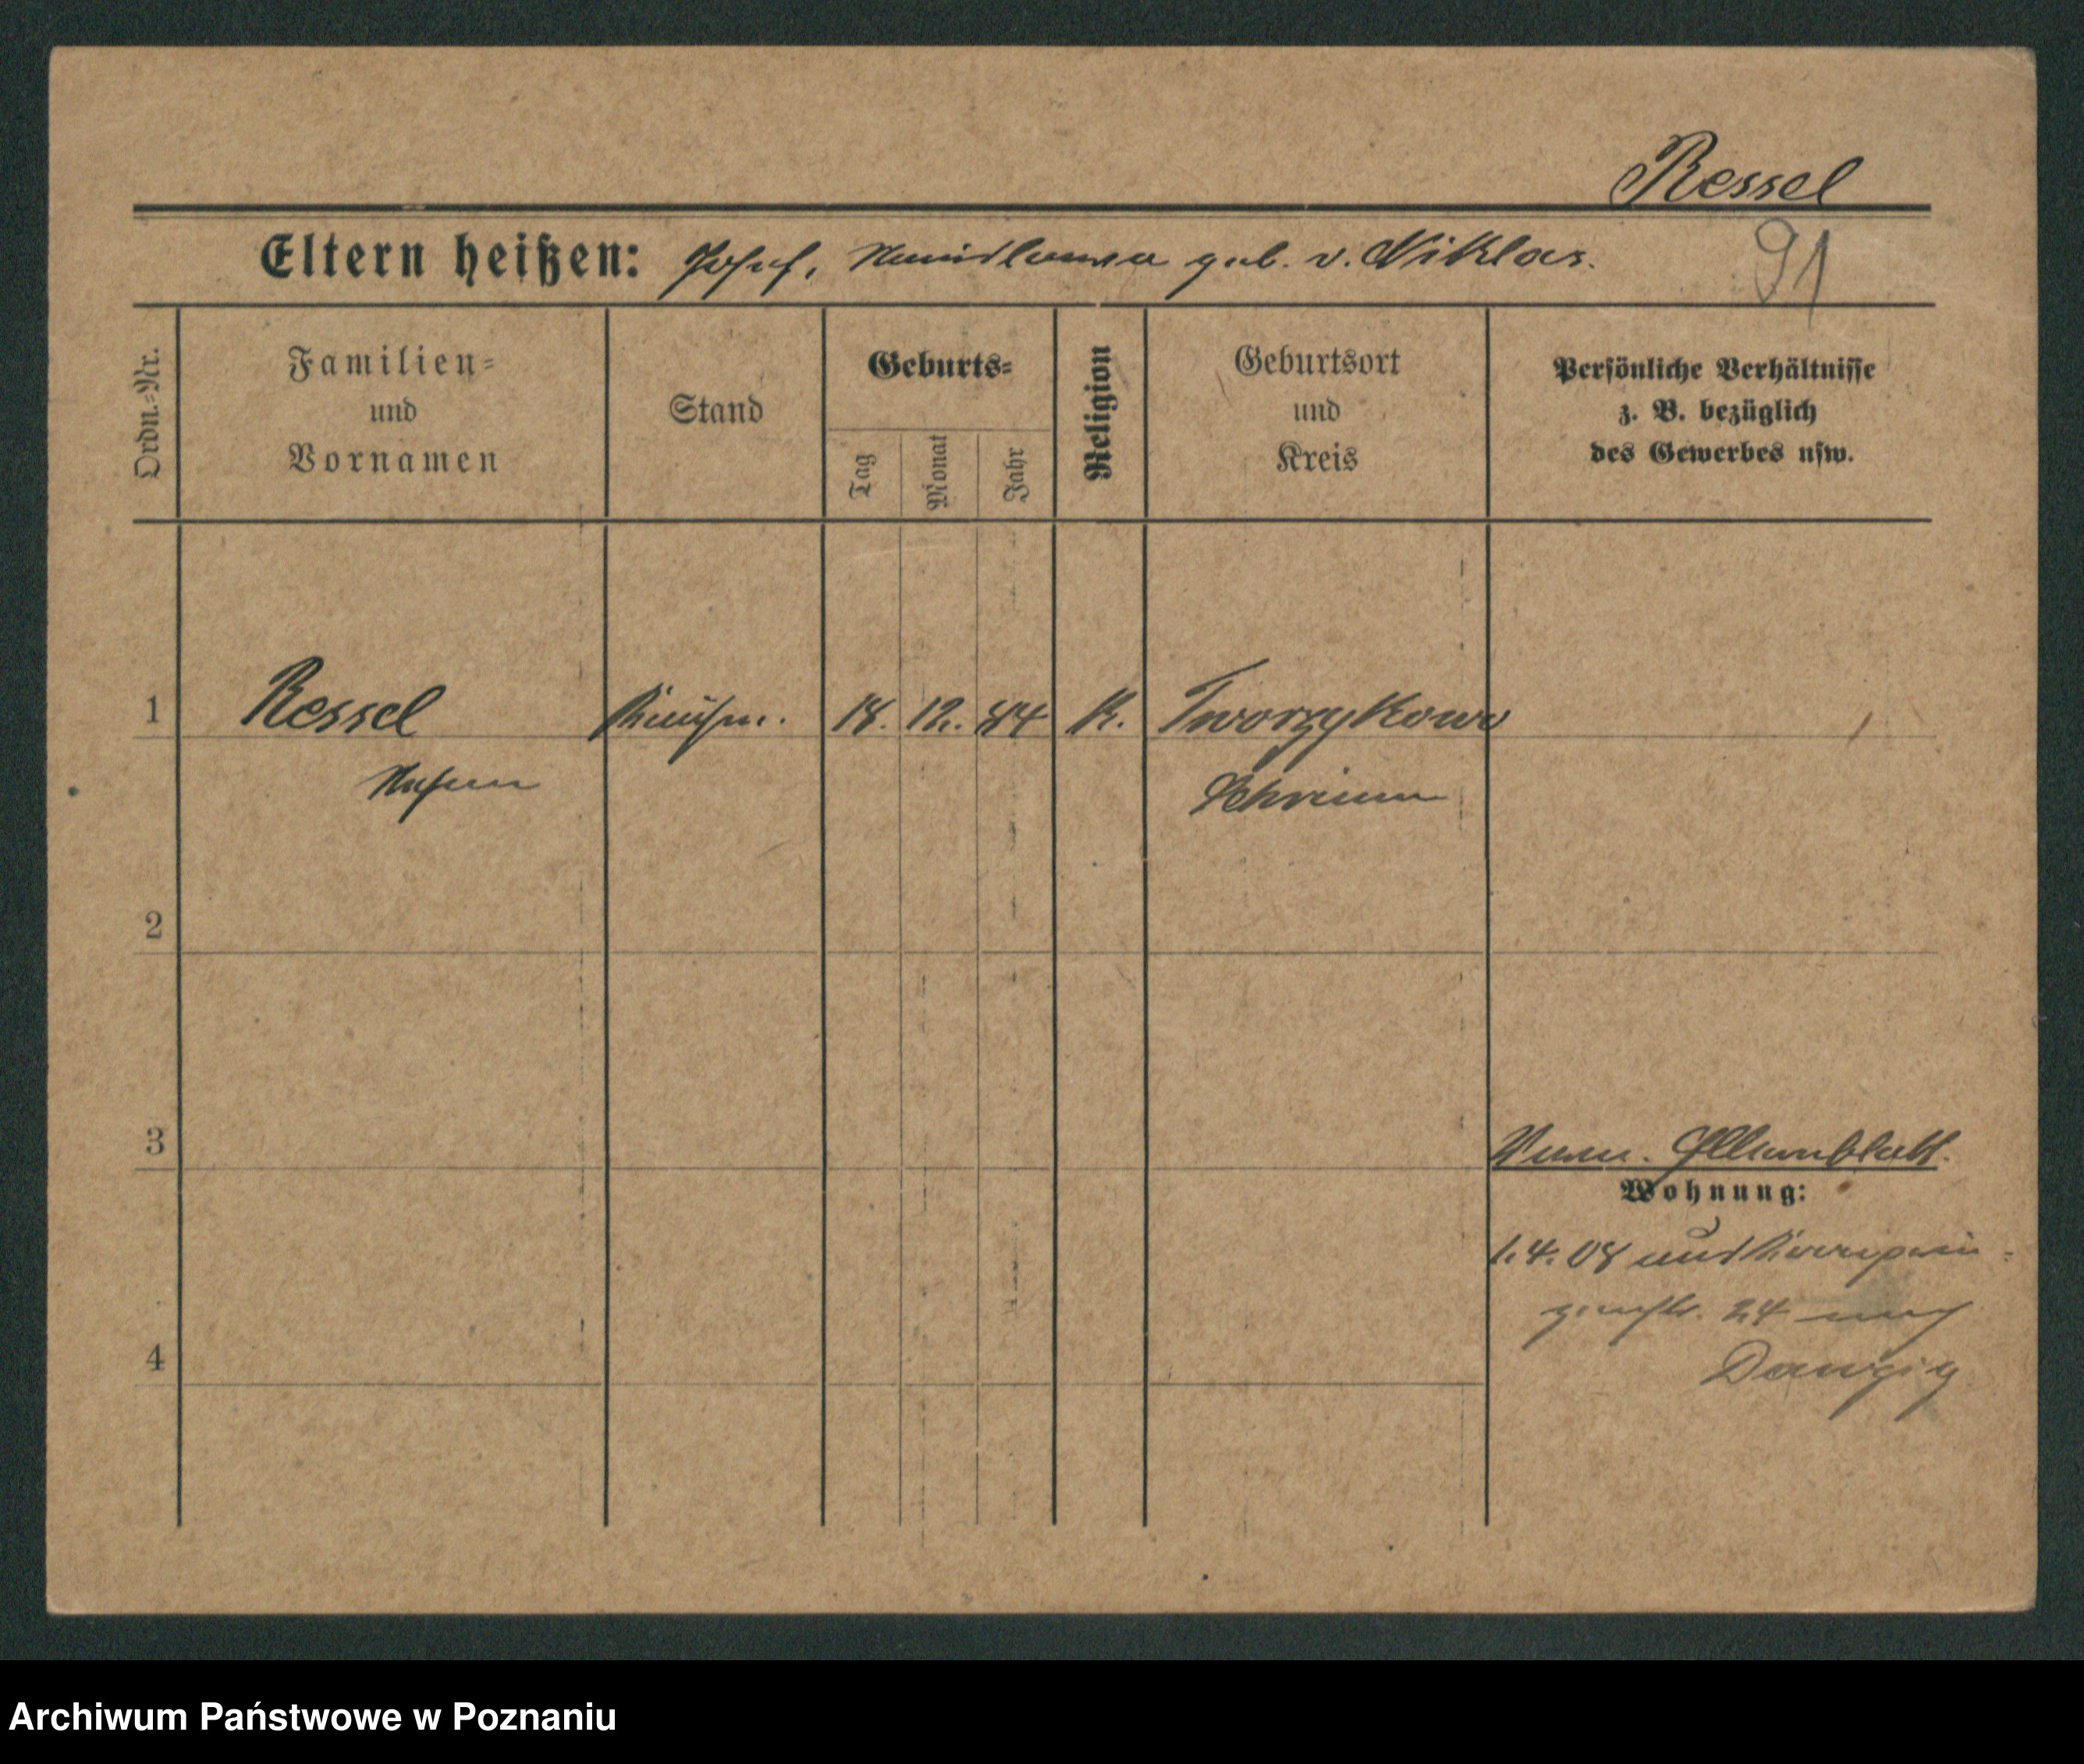 Ressel
Eltern heißen: Josef, geb. v. Niklas.
91
Ordn.-Nr.
Familien- und Vornamen
Stand
Geburts-
Tag
Monat
Jahr
Religion
Geburtsort und Kreis
Persönliche Verhältnisse
z. B. bezüglich
des Gewerbes usw.
1 Ressel Kaufm. 18. 12. 84 K. Tworzykowo
Schrimm
2
3
Wohnung:
1.4.08
24 nach
Danzig
4
Archiwum Państwowe w Poznaniu